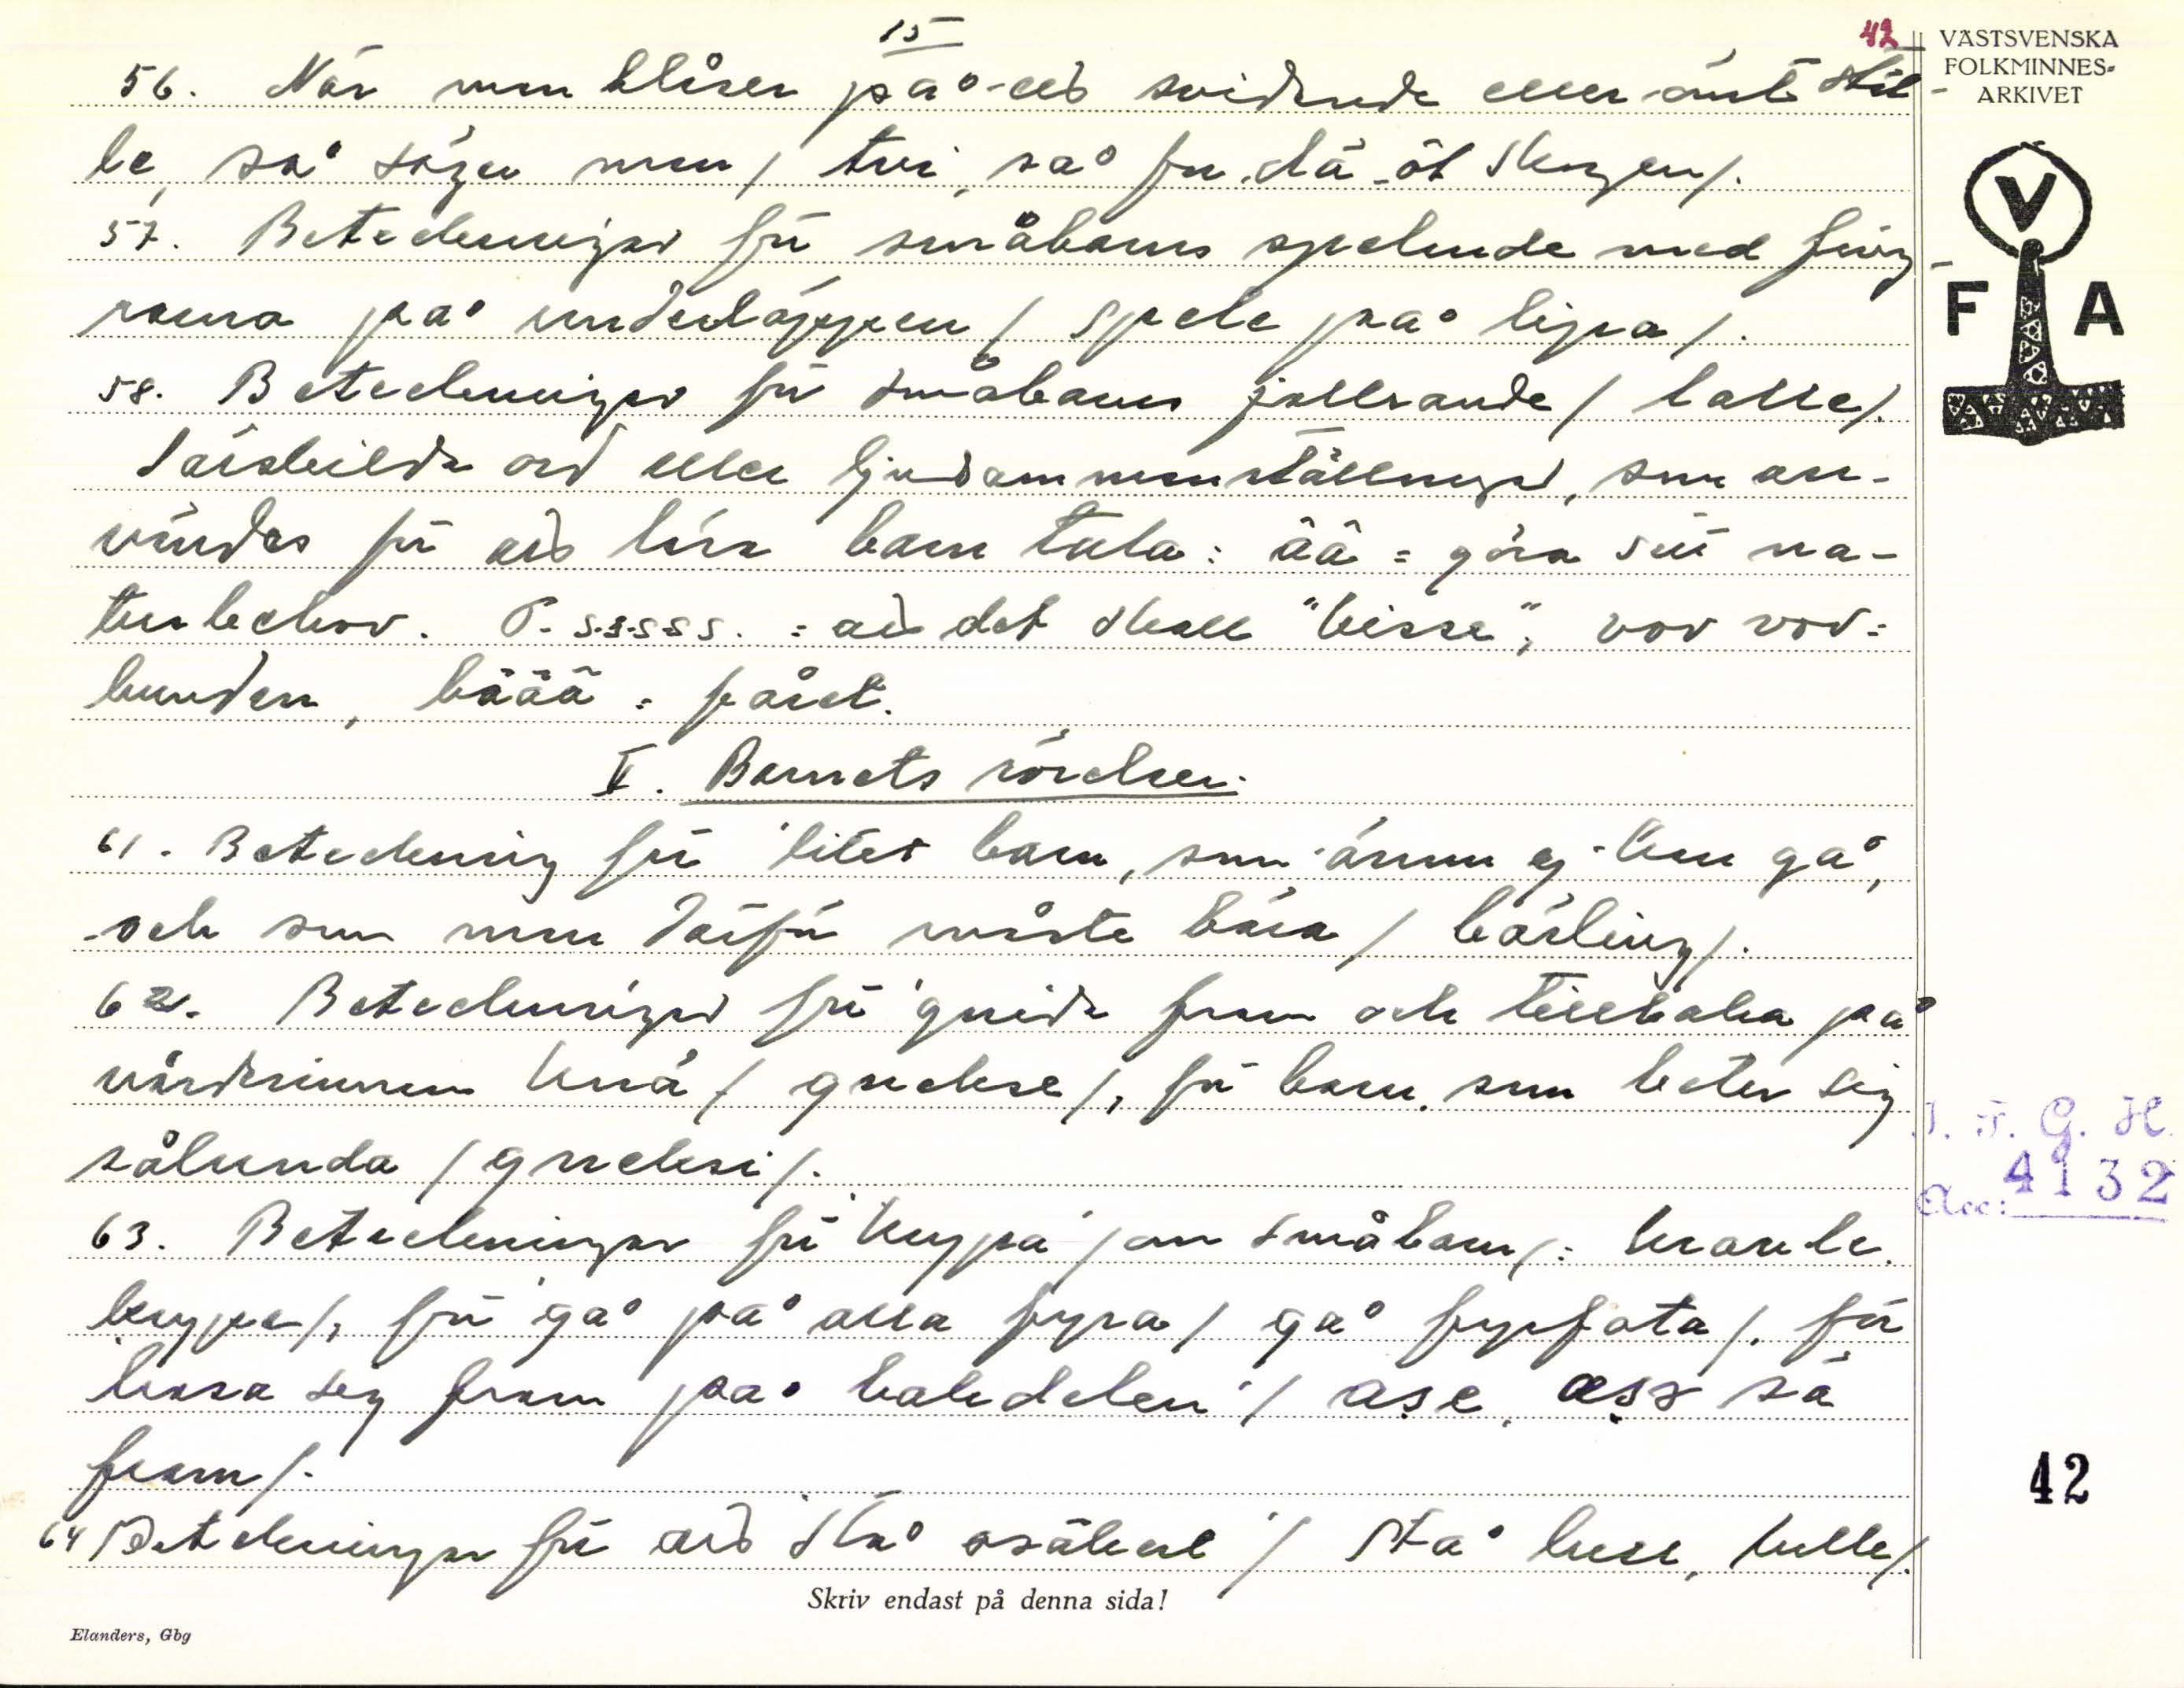 15
42
56. När man blåser på ett svidande eller ömt stäl-
le, så säger man / tvi, så for dä åt skogen/.
57. Beteckningar för småbarns spelande med fing-
rarna på underläppen / spele på lipa /.
58. Beteckningar för småbarns jollrande / lalle/.
Särskilda ord eller ljudsammanställningar, som an-
vändes för att lära barn tala: ää = göra sitt na-
turbehov. P.s.s.s.s.s. = att det skall "kisse", vov vov =
hunden, bäää = fåret.
V. Barnets rörelser.
61. Beteckning för 'litet barn, som ännu ej kan gå,
och som man därför måste bära / bärling/.
62. Beteckningar för 'gnida fram och tillbaka på
vårdarinnans knä / gnekse/, för barn som beter sig
sålunda / gneksi/.
63. Beteckningar för 'krypa' / om småbarn/: kravle,
krype/, för 'gå på alla fyra / gå fyrfota/, för
'hasa sig fram på bakdelen' / ase, ase sä
fram/.
64 Beteckningar för att 'stå osäkert' / stå kull, kulle/.
VÄSTSVENSKA
FOLKMINNES-
ARKIVET
V
F A
I. F. G. H.
Acc: 4132
42
Skriv endast på denna sida!
Elanders, Gbg